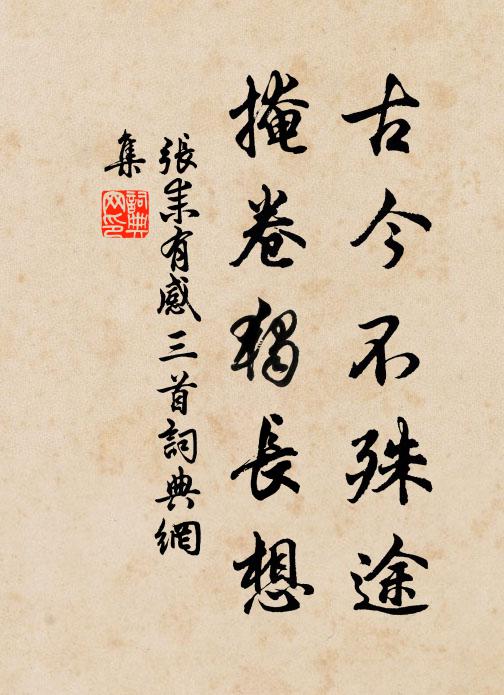 古今不殊途
掩卷獨長想
張耒有感三首詞典網
集
詞典
网印